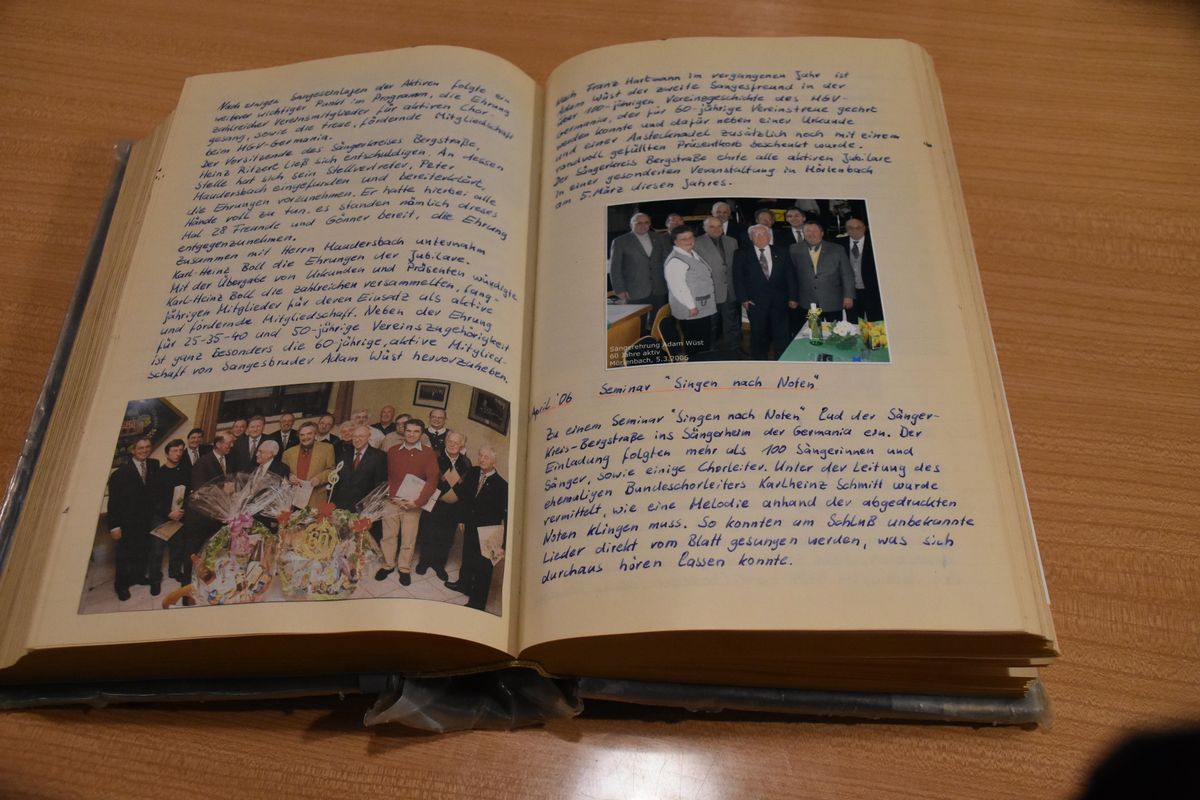 Nach einigen Sangeseinlagen der Aktiven folgte ein
weiterer wichtiger Punkt im Programm, die Ehrung
zahlreicher Vereinsmitglieder für aktiven Chor-
gesang, sowie die treue, fördernde Mitgliedschaft
beim MGV-Germania.
Der Vorsitzende des Sängerkreises Bergstraße,
Heinz Ritzert ließ sich entschuldigen. An dessen
Stelle hat sich sein Stellvertreter, Peter
Haudersbach eingefunden und bereiterklärt,
die Ehrungen vorzunehmen. Er hatte hierbei alle
Hände voll zu tun, es standen nämlich dieses
Mal 28 Freunde und Gönner bereit, die Ehrung
entgegenzunehmen.
Zusammen mit Herrn Haudersbach unternahm
Karl-Heinz Boll die Ehrungen der Jubilare.
Mit der Übergabe von Urkunden und Präsenten würdigte
Karl-Heinz Boll die zahlreichen versammelten, lang-
jährigen Mitglieder für deren Einsatz als aktive
und fördernde Mitgliedschaft. Neben der Ehrung
für 25-35-40 und 50-jährige Vereinszugehörigkeit
ist ganz besonders die 60 jährige, aktive Mitglied-
schaft von Sangesbruder Adam Wüst hervorzuheben.
Nach Franz Hartmann im vergangenen Jahr ist
Adam Wüst der zweite Sangesfreund in der
über 100-jährigen Vereinsgeschichte des MGV-
Germania, der für 60-jährige Vereinstreue geehrt
werden konnte und dafür neben einer Urkunde
und einer Anstecknadel zusätzlich noch mit einem
randvoll gefüllten Präsentkorb beschenkt wurde.
Der Sängerkreis Bergstraße ehrte alle aktiven Jubilare
in einer gesonderten Veranstaltung in Mörlenbach
am 5. März diesen Jahres.
Sängerehrung Adam Wüst
60 Jahre aktiv
Mörlenbach, 5.3.2006
April '06 Seminar "Singen nach Noten"
Zu einem Seminar "Singen nach Noten" lud der Sänger-
kreis-Bergstraße ins Sängerheim der Germania ein. Der
Einladung folgten mehr als 100 Sängerinnen und
Sänger, sowie einige Chorleiter. Unter der Leitung des
ehemaligen Bundeschorleiters Karlheinz Schmitt wurde
vermittelt, wie eine Melodie anhand der abgedruckten
Noten klingen muss. So konnten am Schluß unbekannte
Lieder direkt vom Blatt gesungen werden, was sich
durchaus hören lassen konnte.